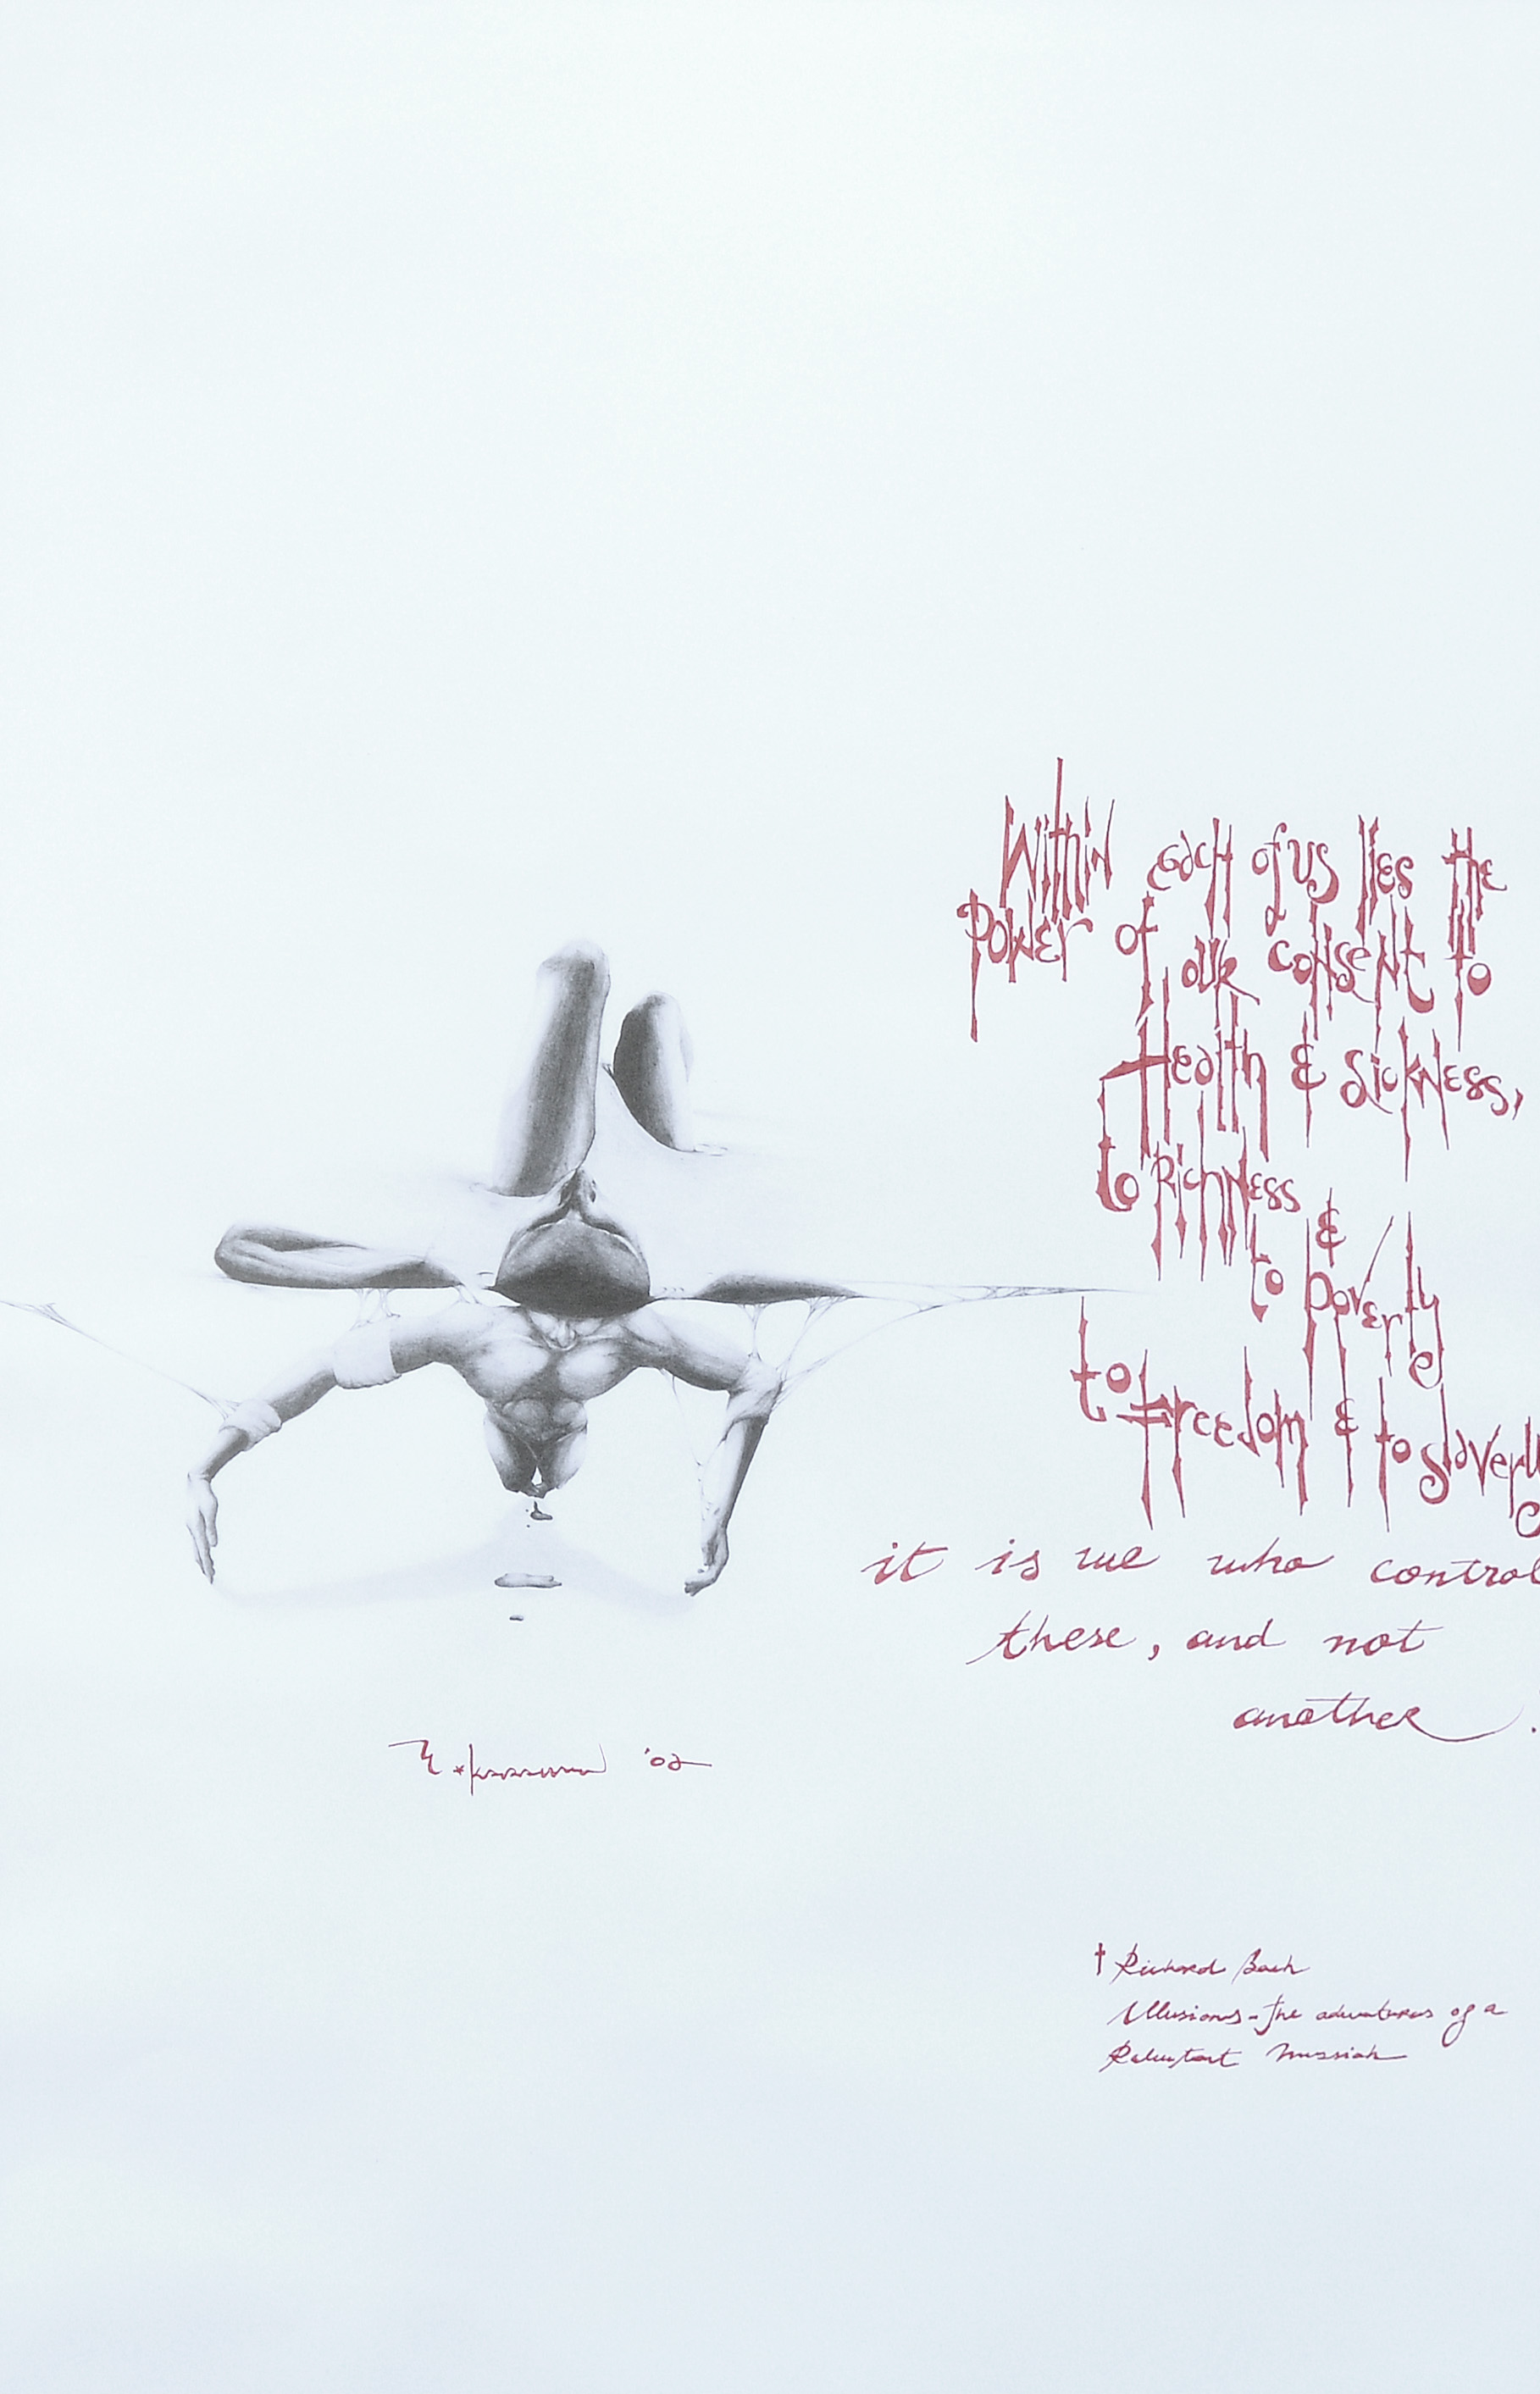 Within each of us lies the
Power of our consent to
Health & Sickness,
to Richness
&
to poverty
to Freedom & to slavery
it is we who control
these, and not
another.
'02
† Richard Bach
Illusions - The adventures of a
Reluctant Messiah